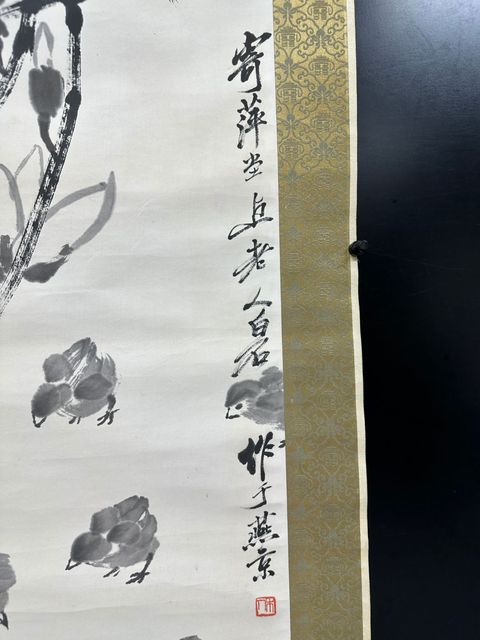 寄萍堂上老人白石
作于燕京